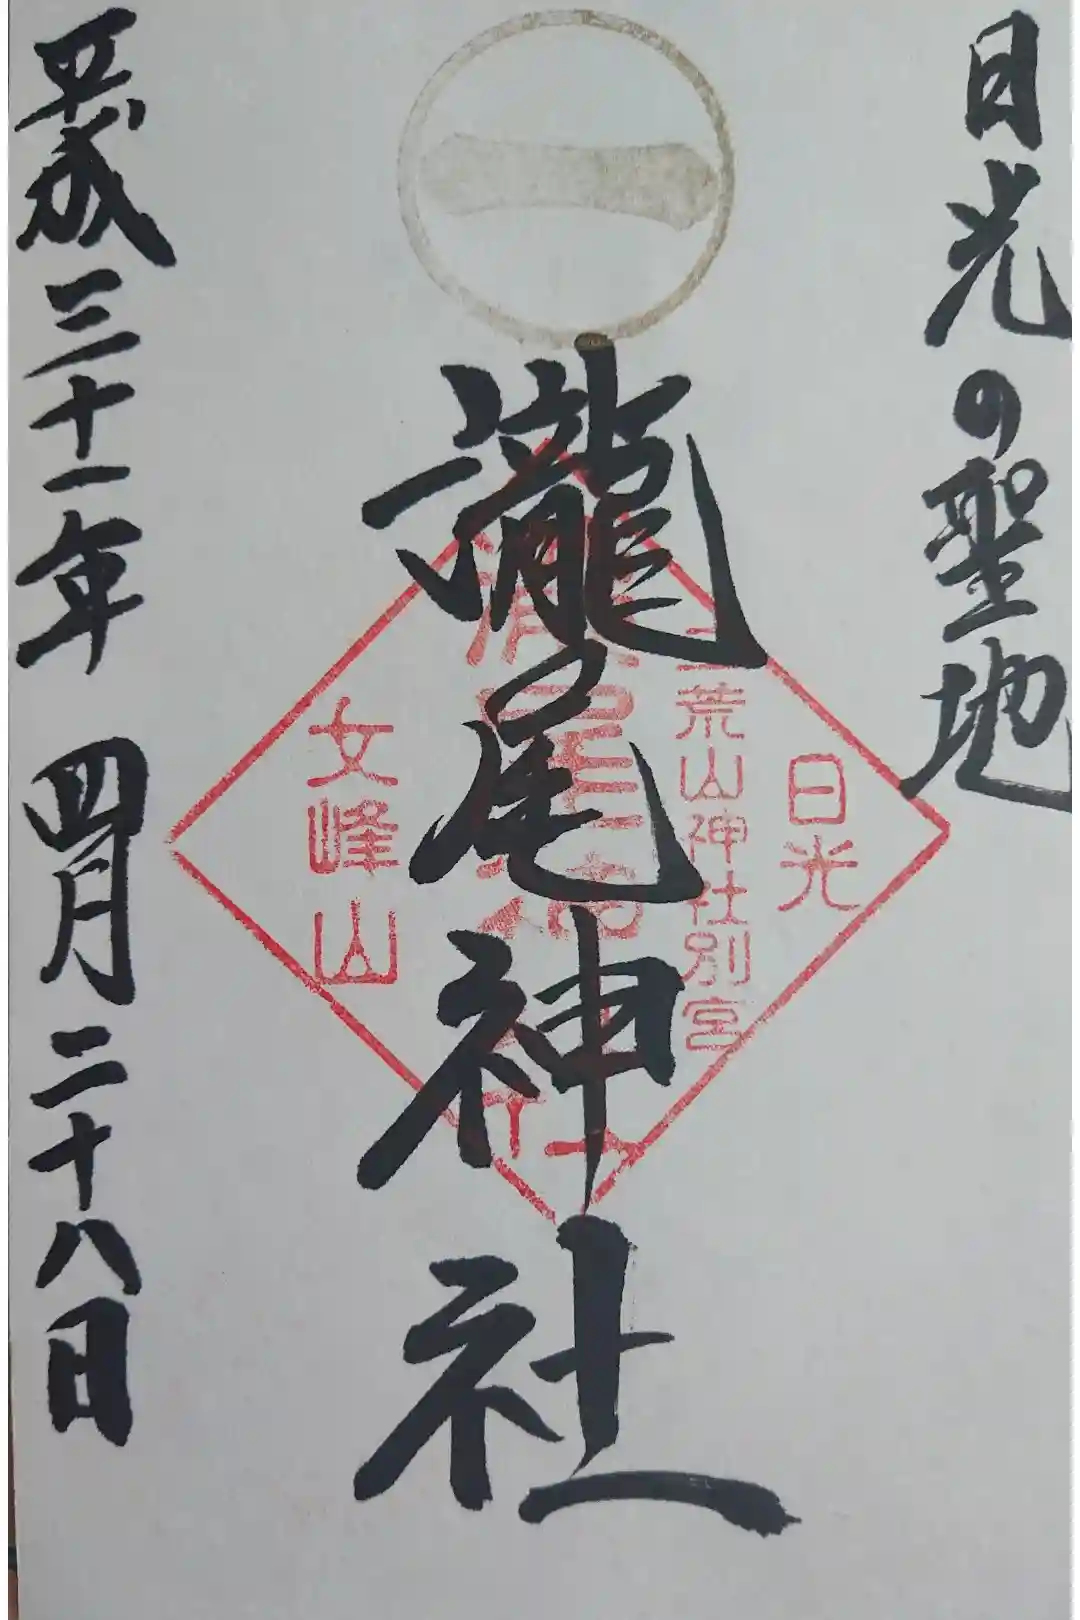 日光の聖地
一
瀧尾神社
日光
二荒山神社別宮
女峰山
平成三十一年 四月 二十八日